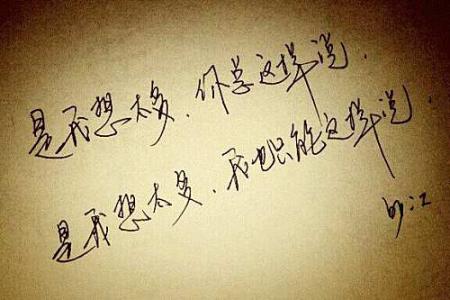 是我想太多，你总这样说.
是我想太多，我也只能这样说.